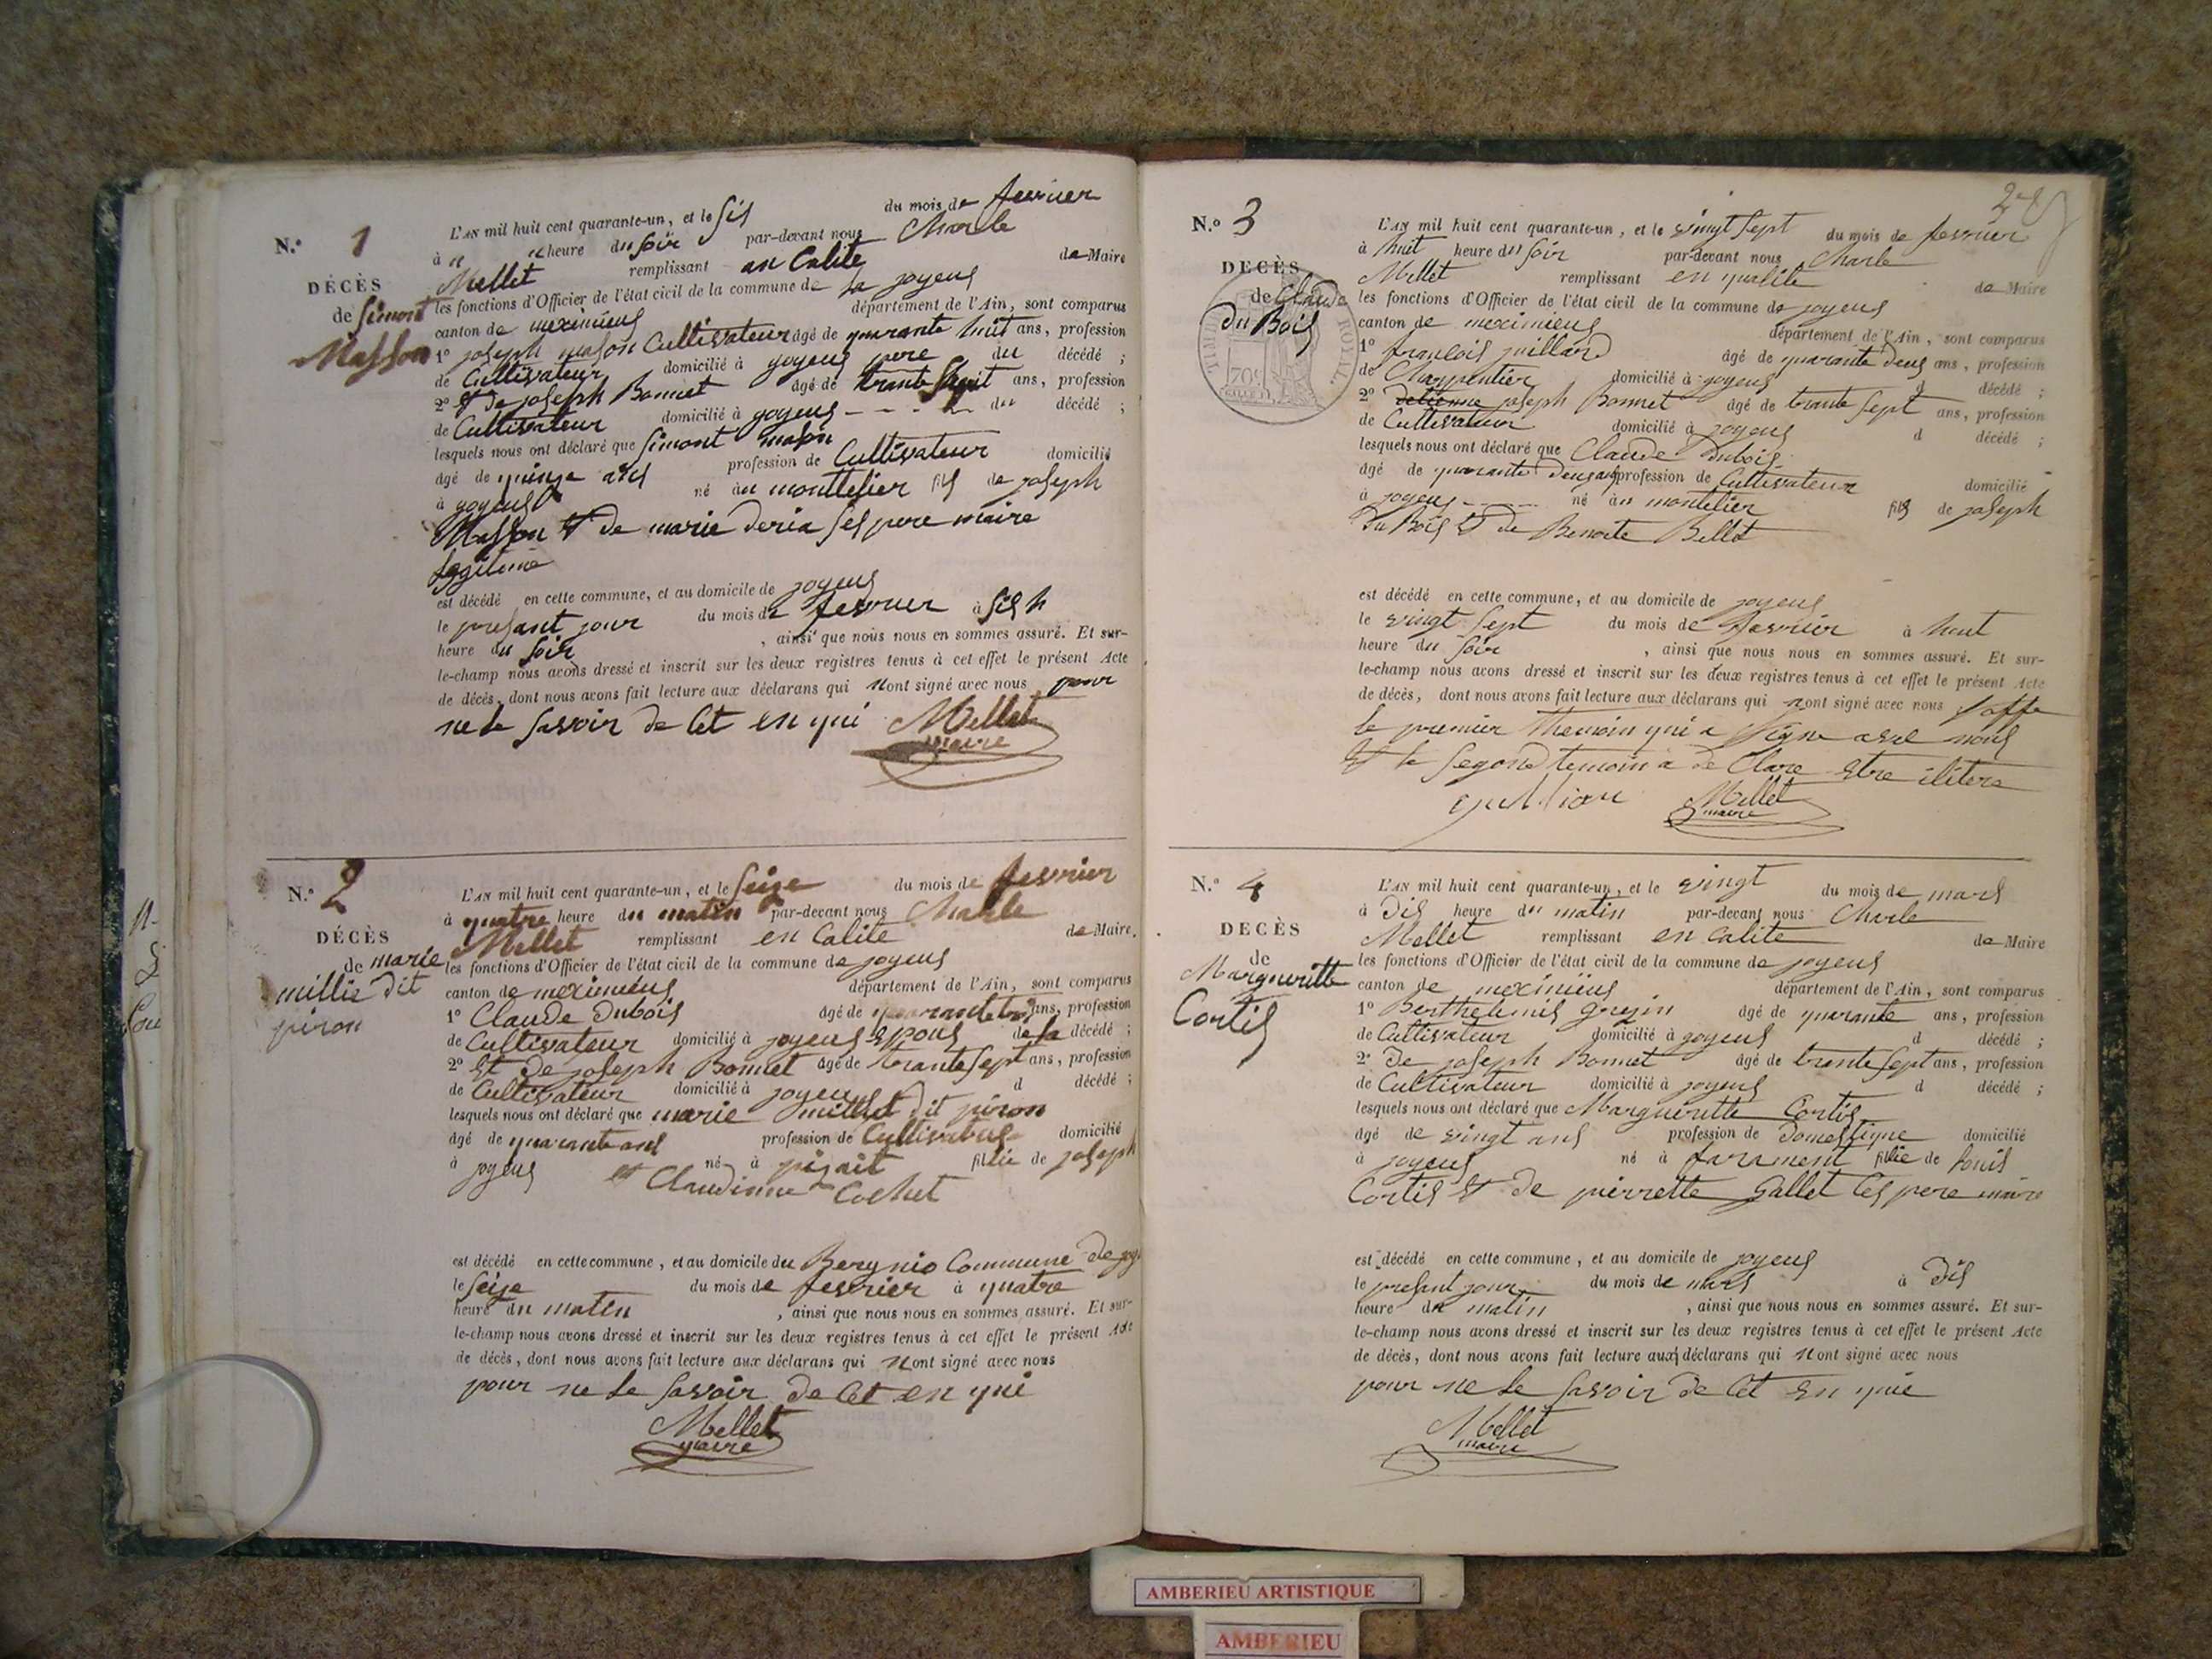 N.º 1
DÉCÈS
de Simont
Masson
L'AN mil huit cent quarante-un, et le sis du mois de fevrier
à heure du soir par-devant nous Charle
Mellet remplissant an Calite de Maire
les fonctions d'Officier de l'état civil de la commune de joyeus
canton de meximieus département de l'Ain, sont comparus
1º joseph mason Cultivateur âgé de quarante huit ans, profession
de Cultivateur domicilié à joyeus pere du décédé ;
2º Et de joseph Bonnet âgé de trante sept ans, profession
de Cultivateur domicilié à joyeus du décédé ;
lesquels nous ont déclaré que Simont mason
âgé de quinze ans profession de Cultivateur domicilié
à joyeus né au montlelier fils de joseph
Masson Et de marie deria ses pere maire
legitime
est décédé en cette commune, et au domicile de joyeus
le presant jour du mois de fevrier à sis h
heure du soir , ainsi que nous nous en sommes assuré. Et sur-
le-champ nous avons dressé et inscrit sur les deux registres tenus à cet effet le présent Acte
de décès, dont nous avons fait lecture aux déclarans qui n'ont signé avec nous pour
ne le savoir de Cet en qui Mellet
maire
N.º 2
DÉCÈS
de marie
millie dit
piron
L'AN mil huit cent quarante-un, et le seize du mois de fevrier
à quatre heure du matin par-devant nous Charle
Mellet remplissant en Calite de Maire.
les fonctions d'Officier de l'état civil de la commune de joyeus
canton de meximieus département de l'Ain, sont comparus
1º Claude Dubois âgé de ans, profession
de Cultivateur domicilié à joyeus Epous de la décédé ;
2º Et De joseph Bonnet âgé de trante sept ans, profession
de Cultivateur domicilié à joyeus d décédé ;
lesquels nous ont déclaré que marie dit piron
âgé de quarante ans profession de domicilié
à joyeus né à pizait fillie de joseph
et Claudinne Cochet
est décédé en cette commune, et au domicile du Commune de
le seize du mois de fevrier à quatre
heure du matin , ainsi que nous nous en sommes assuré. Et sur-
le-champ nous avons dressé et inscrit sur les deux registres tenus à cet effet le présent Acte
de décès, dont nous avons fait lecture aux déclarans qui n'ont signé avec nous
pour ne le savoir de Cet en qui
Mellet
maire
N.º 3
DECÈS
de Claude
du Bois
L'AN mil huit cent quarante-un, et le vingt sept du mois de fevrier
à huit heure du soir par-devant nous Charle
Mellet remplissant en qualite de Maire
les fonctions d'Officier de l'état civil de la commune de joyeus
canton de meximieus département de l'Ain, sont comparus
1º francois juillard âgé de quarante deus ans, profession
de Charpentier domicilié à joyeus d décédé ;
2º joseph Bonnet âgé de trante sept ans, profession
de Cultivateur domicilié à joyeus d décédé ;
lesquels nous ont déclaré que Claude Dubois
âgé de quarante deus ans profession de Cultivateur domicilié
à joyeus né au montelier fils de joseph
du Bois Et de Benoite Bellet
est décédé en cette commune, et au domicile de joyeus
le vingt sept du mois de fevrier à huit
heure du soir , ainsi que nous nous en sommes assuré. Et sur-
le-champ nous avons dressé et inscrit sur les deux registres tenus à cet effet le présent Acte
de décès, dont nous avons fait lecture aux déclarans qui n'ont signé avec nous
le premier themoin qui a signe avec nous
Et le segond temoin a de Clare Etre ilitere
Mellet
maire
N.º 4
DECÈS
de
Margueritte
Cortis
L'AN mil huit cent quarante-un, et le vingt du mois de mars
à Dis heure du matin par-devant nous Charle
Mellet remplissant en Calite de Maire
les fonctions d'Officier de l'état civil de la commune de joyeus
canton de meximieus département de l'Ain, sont comparus
1º Berthelemis grezin âgé de quarante ans, profession
de Cultivateur domicilié à joyeus d décédé ;
2º De joseph Bonnet âgé de trante sept ans, profession
de Cultivateur domicilié à joyeus d décédé ;
lesquels nous ont déclaré que Margueritte Cortis
âgé de vingt ans profession de Domestique domicilié
à joyeus né à farament fillie de louis
Cortis Et de pierrette gallet Ces pere maire
est décédé en cette commune, et au domicile de joyeus
le presant jour du mois de mars à Dis
heure du matin , ainsi que nous nous en sommes assuré. Et sur-
le-champ nous avons dressé et inscrit sur les deux registres tenus à cet effet le présent Acte
de décès, dont nous avons fait lecture aux déclarans qui n'ont signé avec nous
pour ne le savoir de Cet en quie
Mellet
maire
AMBERIEU ARTISTIQUE
AMBERIEU